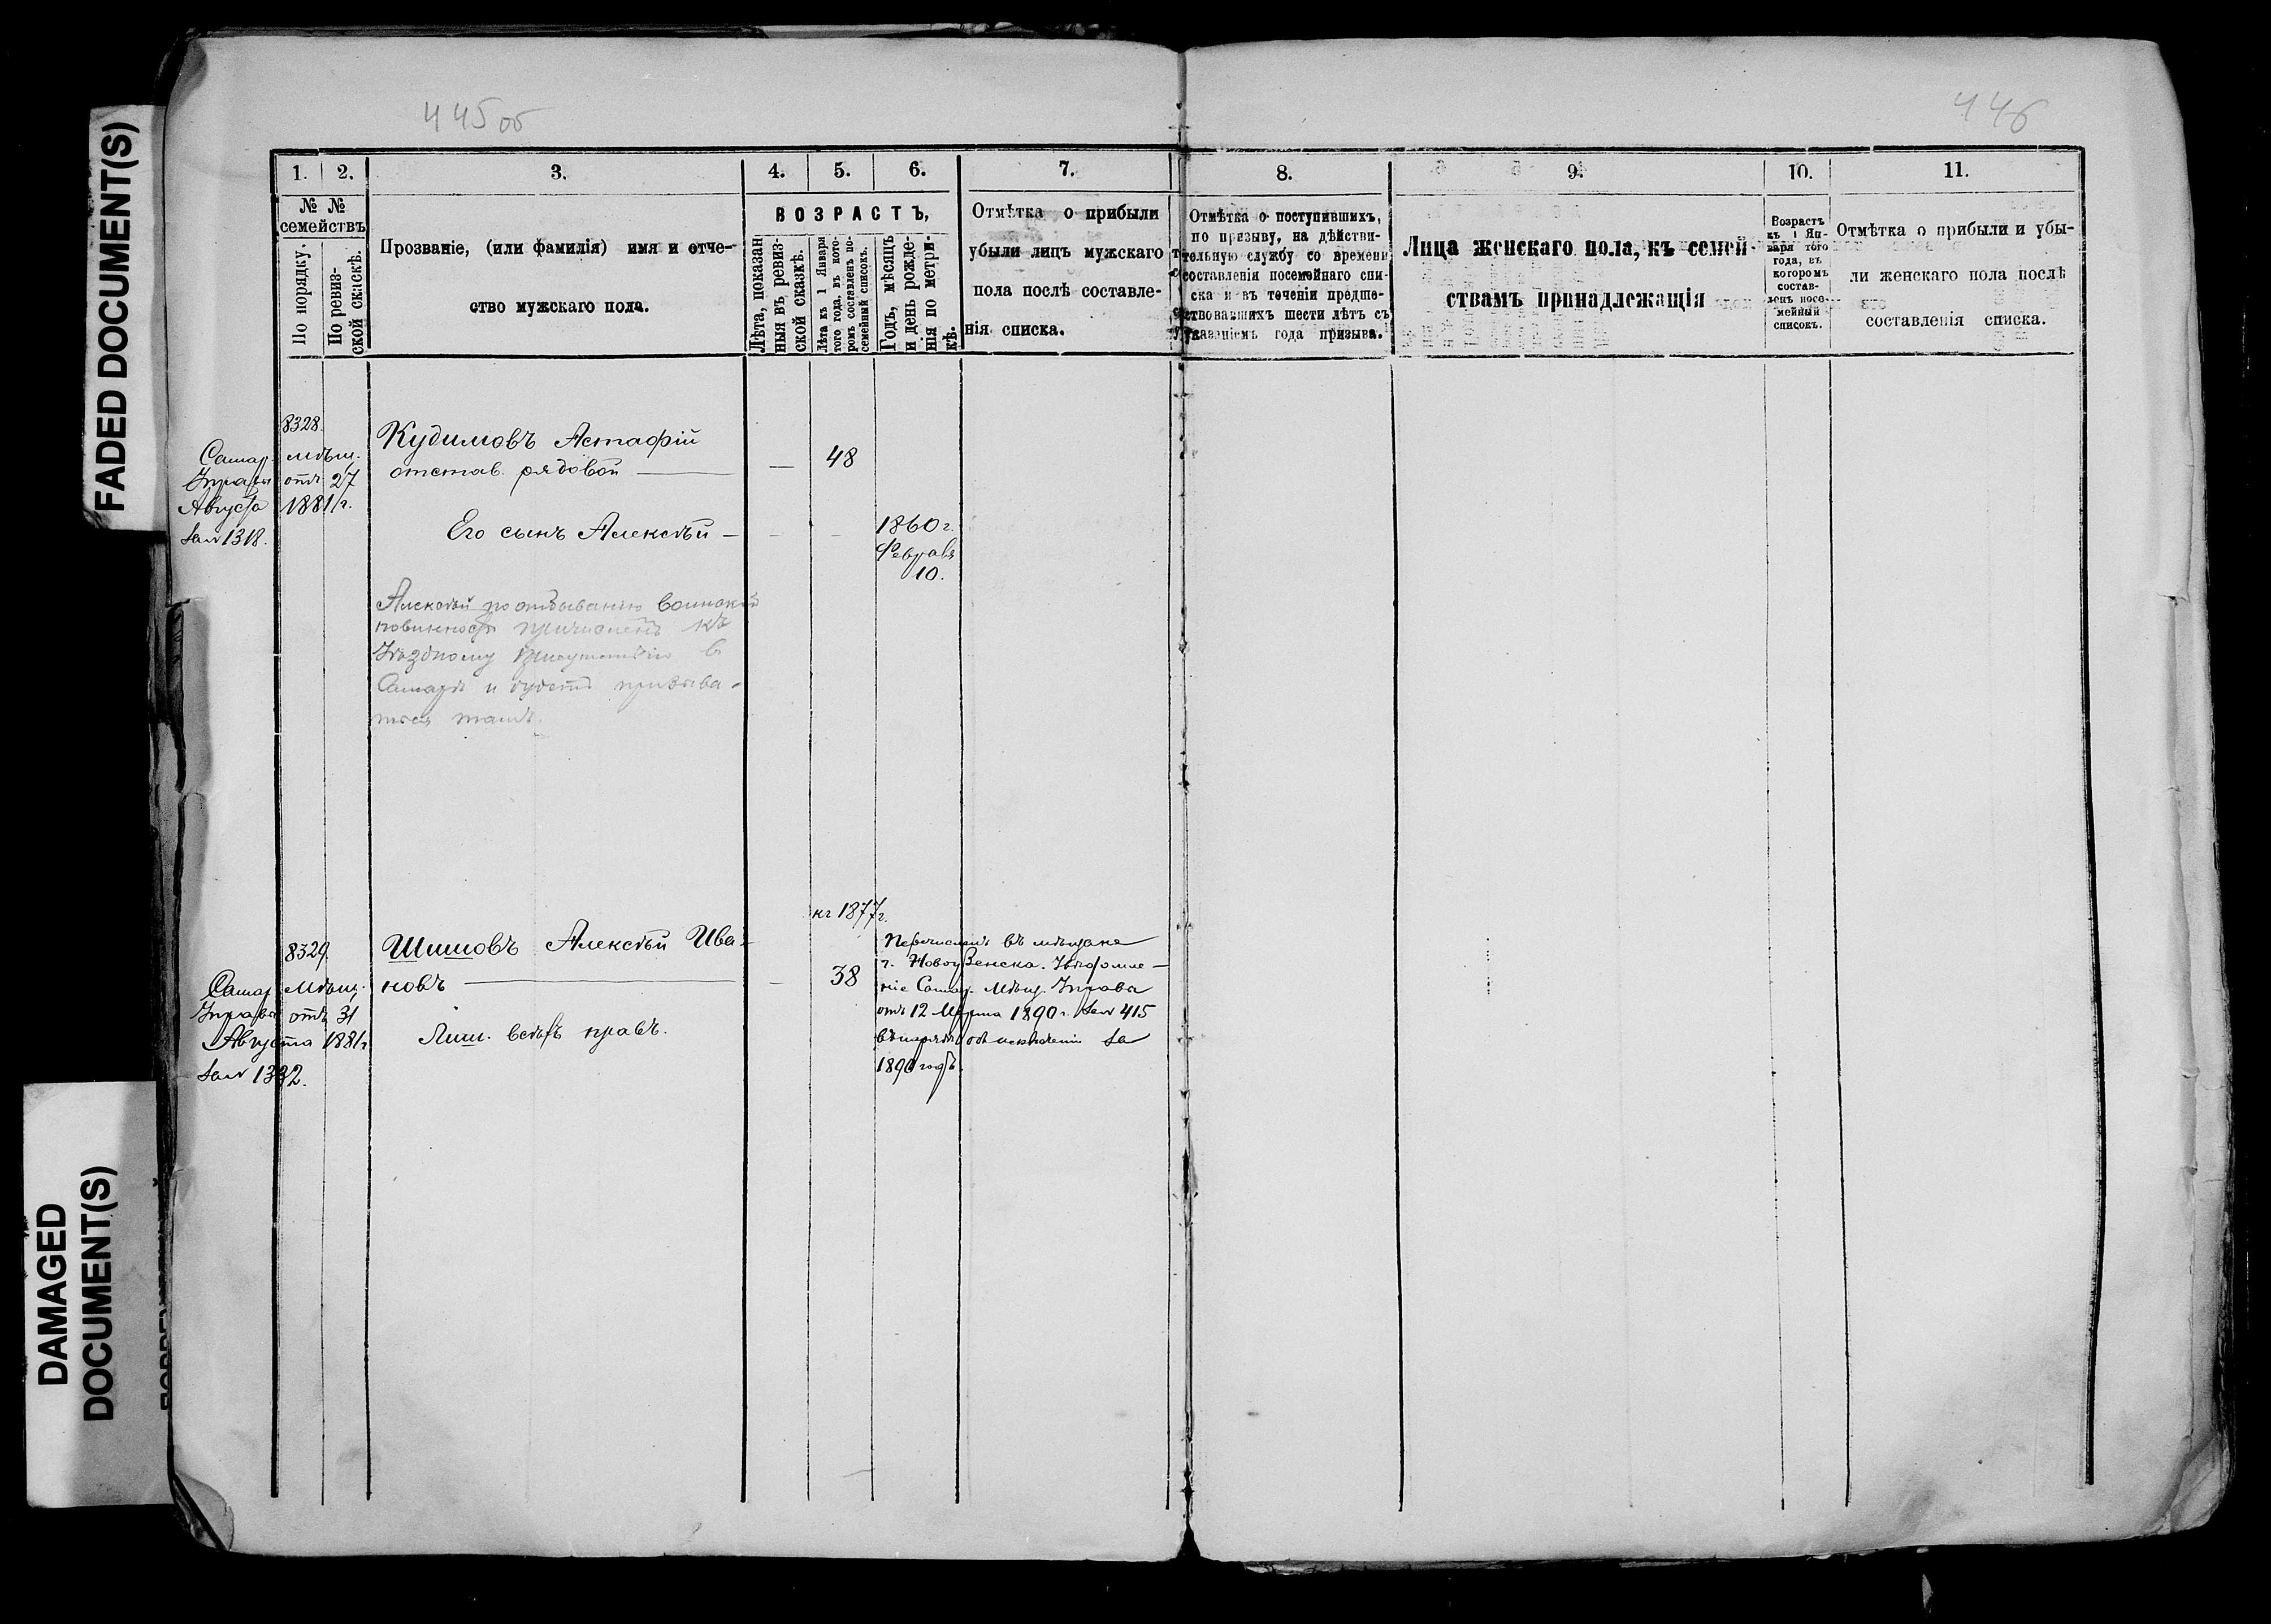 FADED DOCUMENT(S)
DAMAGED
DOCUMENT(S)
445 об
446
1. 2. 3. 4. 5. 6. 7. 8. 9. 10. 11.
№ №
семействъ
По порядку.
По ревиз-
ской сказкѣ.
Прозваніе, (или фамилія) имя и отче-
ство мужскаго пола.
ВОЗРАСТЪ,
Лѣта, показан
ныя въ ревиз-
ской сказкѣ.
Лѣта къ 1 Января
того года, въ кото-
ромъ составленъ по-
семейный списокъ.
Годъ, мѣсяцъ
и день рожде-
нія по метри-
кѣ.
Отмѣтка о прибыли
убыли лицъ мужскаго
пола послѣ составле-
нія списка.
Отмѣтка о поступившихъ,
по призыву, на дѣйстви-
тельную службу со времени
составленія посемейнаго спи-
ска и въ теченіи предше-
ствовавшихъ шести лѣтъ съ
указаніемъ года призыва.
Лица женскаго пола, къ семей-
ствамъ принадлежащія
Возрастъ
къ 1 Ян-
варя того
года, въ
которомъ
состав-
ленъ посе-
мейный
списокъ.
Отмѣтка о прибыли и убы-
ли женскаго пола послѣ
составленія списка.
8328.
Самар. Мѣщ.
Управы отъ 27
Августа 1881 г.
за № 1318.
Кудимовъ Астафій
отстав. рядовой — — 48
Его сынъ Алексѣй — — —
1860 г.
Февраля
10.
Алексѣй по отбыванію воинской
повинности причисленъ къ
Уѣздному присутствію в
Самарѣ и будетъ призыва-
ться тамъ.
8329.
Самар. Мѣщ.
Управы отъ 31
Августа 1881 г.
за № 1332.
Шишовъ Алексѣй Ива-
новъ — —
Лиш. всѣхъ правъ.
къ 1877 г.
38
Перечисленъ въ мѣщане
г. Новоузенска. Увѣдомле-
ніе Самар. Мѣщ. Управы
отъ 12 Марта 1890 г. за № 415
въ нарядѣ объ исключеніи за
1890 годъ.